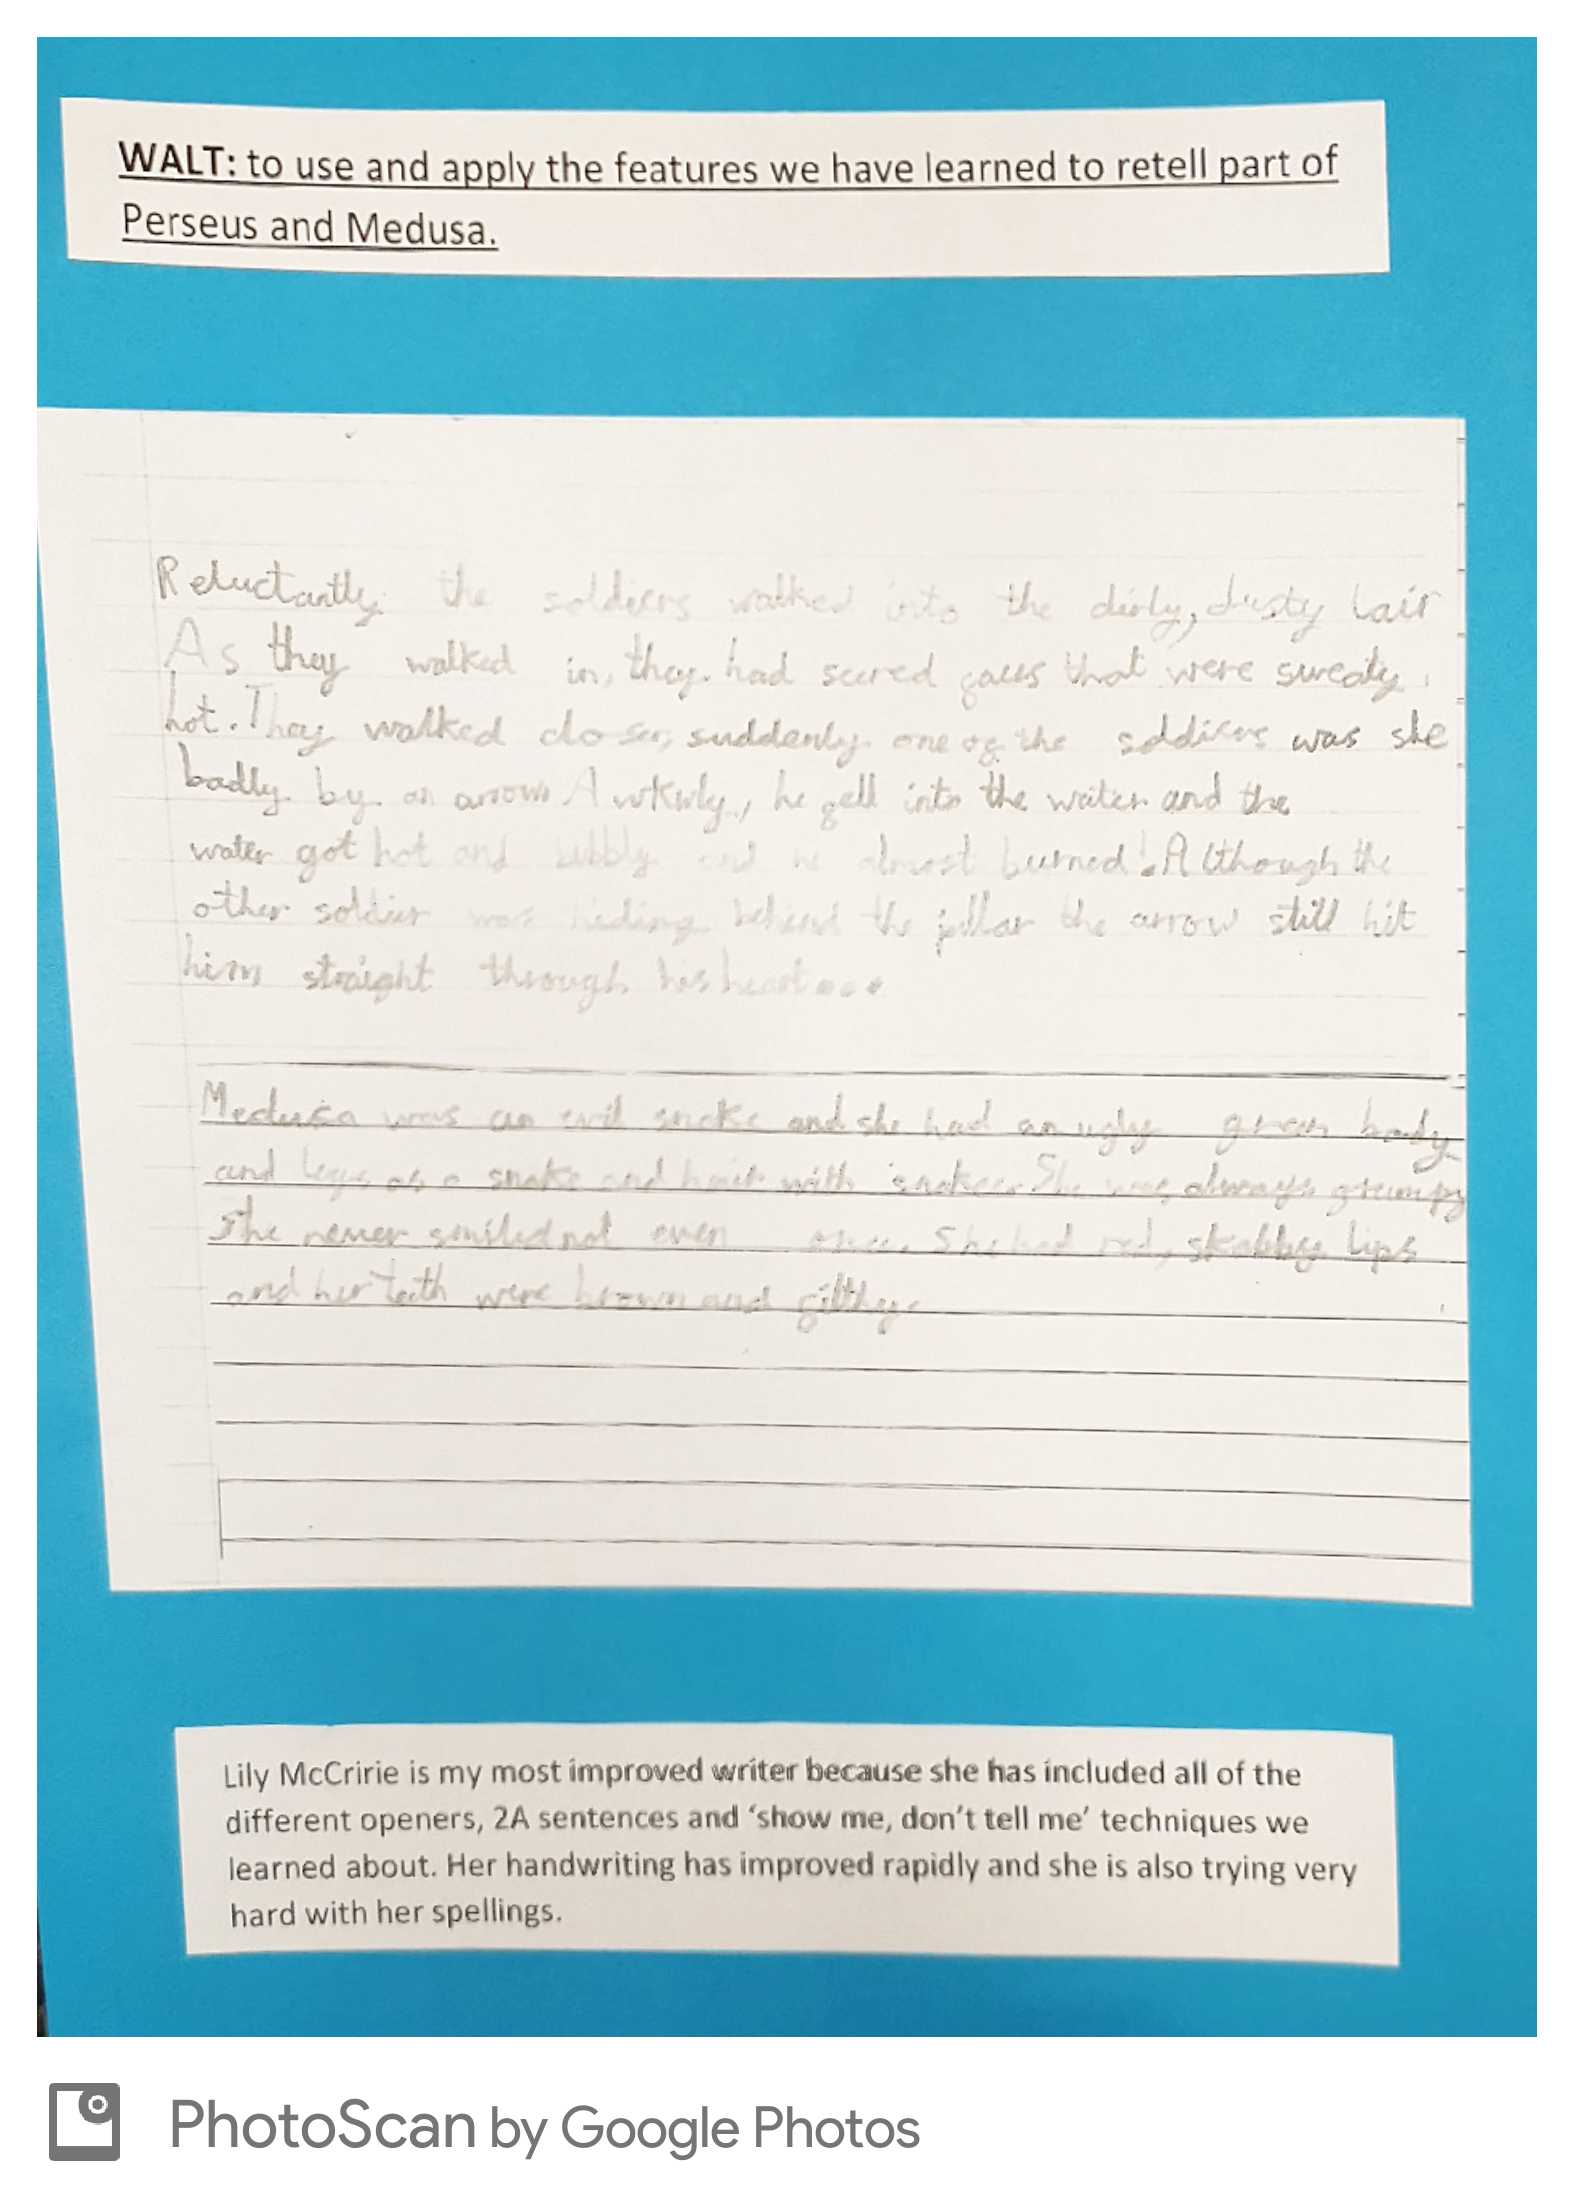 WALT: to use and apply the features we have learned to retell part of
Perseus and Medusa.
Reluctantly the soldiers walked into the dirty, dusty lair
As they walked in, they had scared faces that were sweaty
hot. They walked closer, suddenly one of the soldiers was she
badly by an arrow. Awkwly, he fell into the water and the
water got hot and bubbly and he almost burned! Although the
other soldier was hiding behind the pillar the arrow still hit
him straight through his heart...
Medusa was an evil snake and she had an ugly green body
and legs as a snake and hair with snakes. She was always grumpy
She never smiled not even once. She had red, skabby lips
and her teeth were brown and filthy.
Lily McCririe is my most improved writer because she has included all of the
different openers, 2A sentences and ‘show me, don’t tell me’ techniques we
learned about. Her handwriting has improved rapidly and she is also trying very
hard with her spellings.
PhotoScan by Google Photos